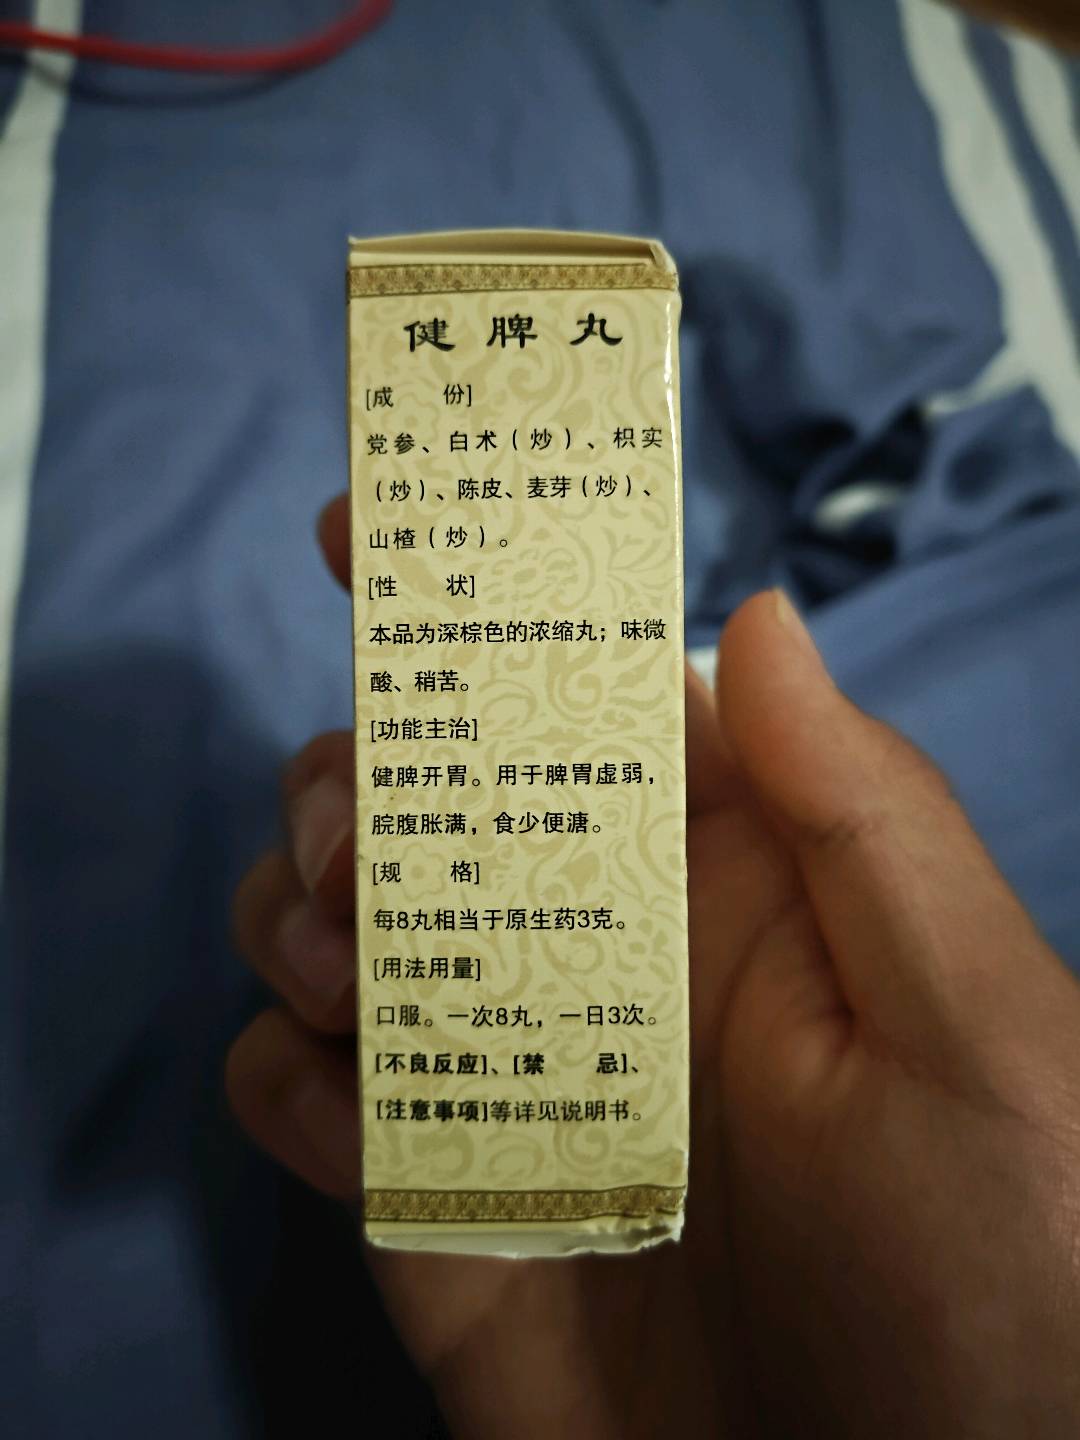 健脾丸
[成 份]
党参、白术（炒）、枳实
（炒）、陈皮、麦芽（炒）、
山楂（炒）。
[性 状]
本品为深棕色的浓缩丸；味微
酸、稍苦。
[功能主治]
健脾开胃。用于脾胃虚弱，
脘腹胀满，食少便溏。
[规 格]
每8丸相当于原生药3克。
[用法用量]
口服。一次8丸，一日3次。
[不良反应]、[禁 忌]、
[注意事项]等详见说明书。